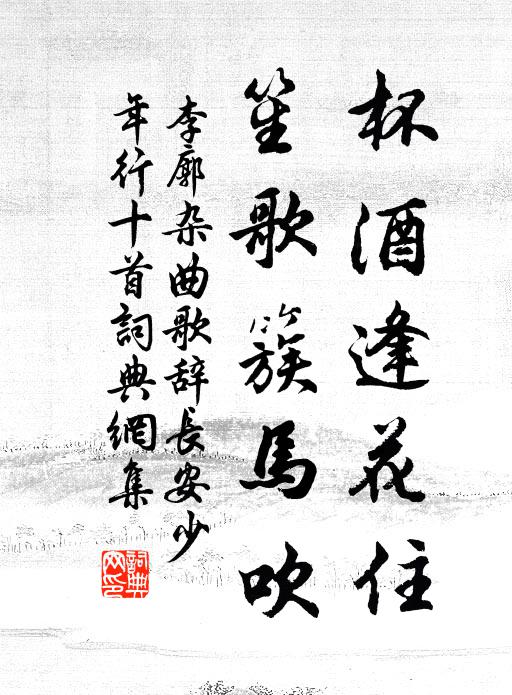 杯酒逢花住
笙歌簇馬吹
李廓杂曲歌辞長安少
年行十首詞典網集
詞典
网印